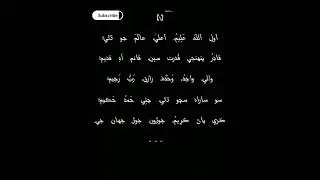 Subscribe
[۱]
اول الله عليم، اعليٰ، عالمَ جو ڌڻي؛
قادرُ پنهنجي قُدرت سين، قائم آهِ قديم؛
والي، واحدُ، وَحدہٗ، رازق، رَبُّ رَحِيم؛
سو ساراه سچو ڌڻي، چئِي حَمدُ حَڪِيم؛
ڪري پاڻ ڪَرِيمُ، جوڙُون جوڙَ جهان جي.
- - -